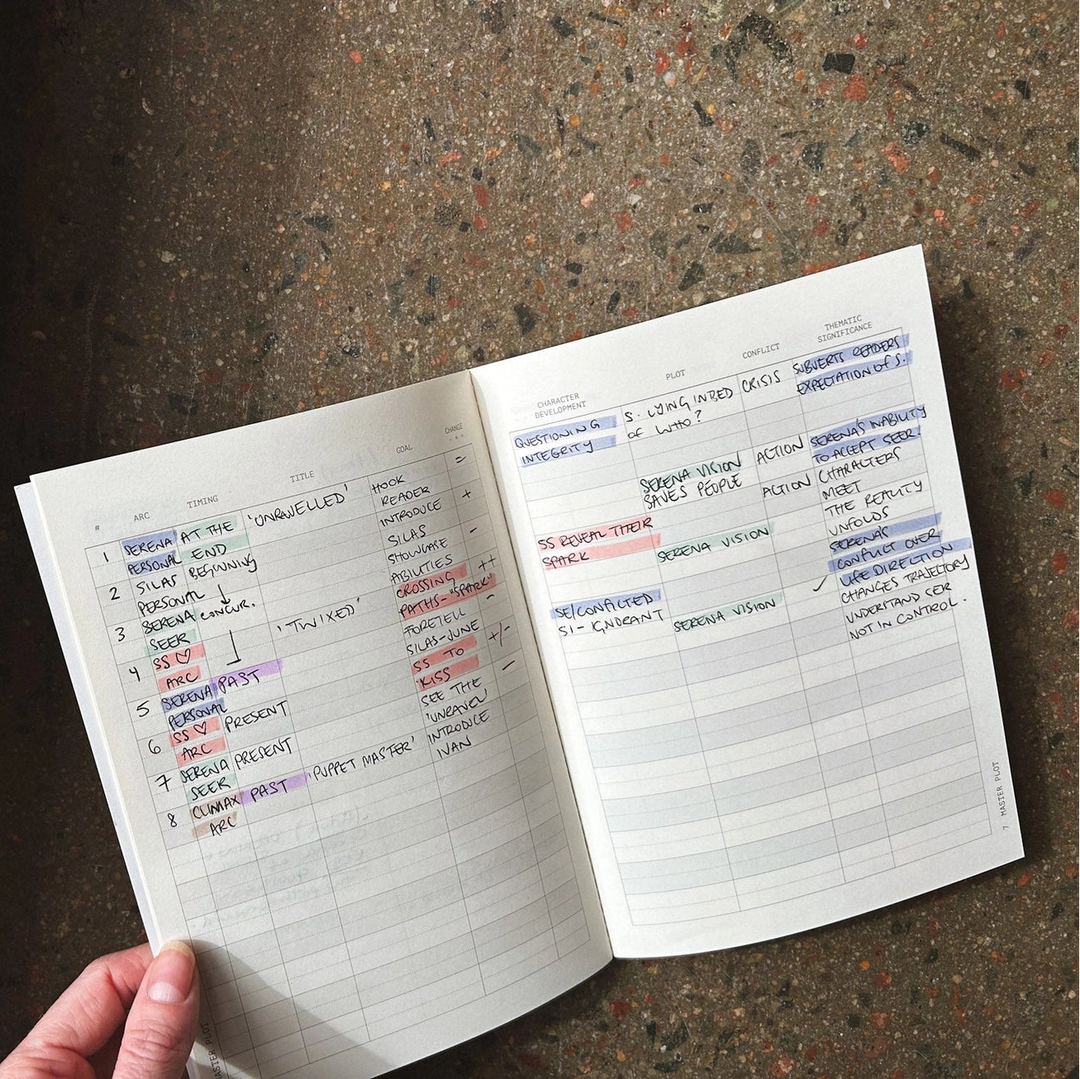 # ARC TIMING TITLE GOAL CHANGE
1 SERENA AT THE 'UNRAVELLED' HOOK =
PERSONAL END READER
2 SILAS BEGINNING INTRODUCE +
PERSONAL ↓ SILAS
3 SERENA CONCUR. SHOWCASE -
SEER ABILITIES
4 SS ♡ 'TWIXED' CROSSING ++
ARC PATHS - "SPARK"
5 SERENA PAST FORETELL -
PERSONAL SILAS - JUNE
6 SS ♡ PRESENT SS TO +/-
ARC KISS
7 SERENA PRESENT SEE THE -
SEER 'UNRAVEL'
8 CLIMAX PAST 'PUPPET MASTER' INTRODUCE
ARC IVAN
MASTER PLOT
CHARACTER DEVELOPMENT PLOT CONFLICT THEMATIC SIGNIFICANCE
QUESTIONING S. LYING IN BED CRISIS SUBVERTS READERS
INTEGRITY OF WHO? EXPECTATION OF S.
SERENA VISION ACTION SERENA'S INABILITY
SAVES PEOPLE TO ACCEPT SEER.
ACTION CHARACTERS
MEET
SS REVEAL THEIR THE REALITY
SPARK SERENA VISION UNFOLDS
SERENA'S
CONFLICT OVER
LIFE DIRECTION
SE/CONFLICTED ✓ CHANGES TRAJECTORY
SI - IGNORANT SERENA VISION UNDERSTAND SEER
NOT IN CONTROL.
7 MASTER PLOT